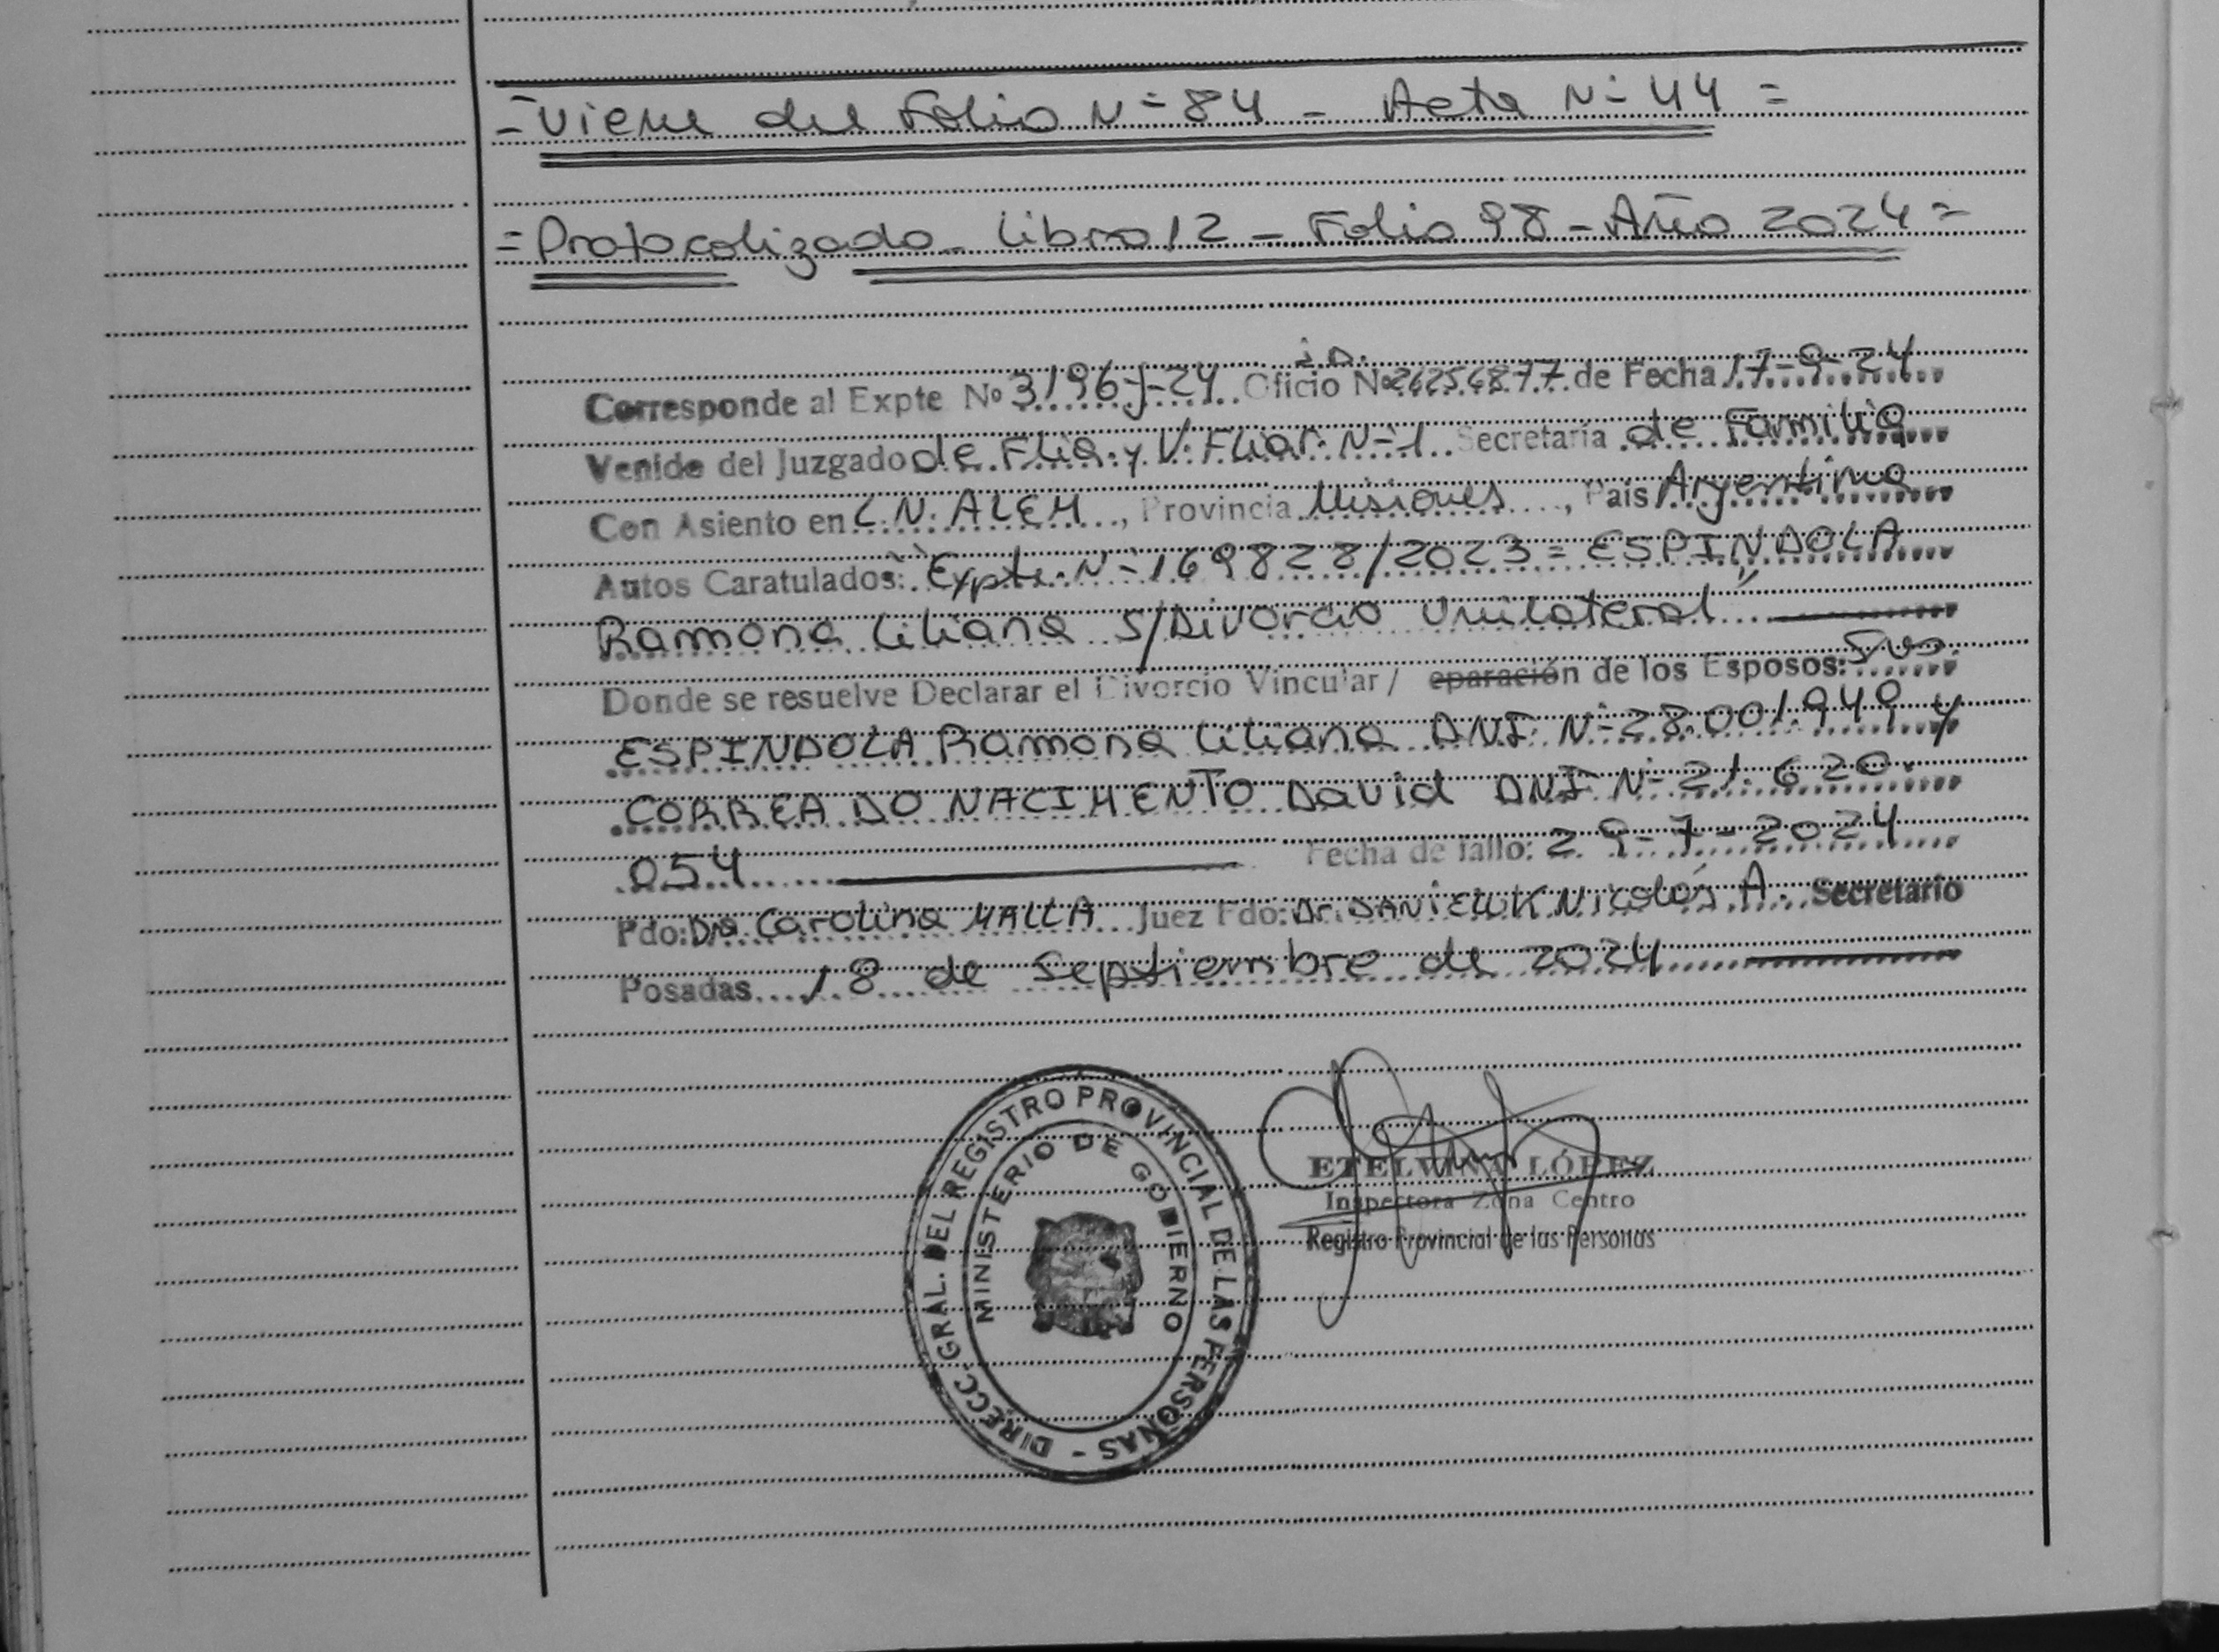 = Viene del Folio Nº 84 - Acta Nº 44 =
= Protocolizado - Libro 12 - Folio 98 - Año 2024 =
Corresponde al Expte Nº 3196-J-24 Oficio Nº 26256877 de Fecha 17-9-24
Venido del Juzgado de Flia. y V. Fliar. Nº 1 Secretaría de Familia
Con Asiento en L.N. ALEM, Provincia Misiones, País Argentina
Autos Caratulados: "Expte. Nº 169828/2023 = ESPINDOLA
Ramona Liliana S/Divorcio Unilateral"
Donde se resuelve Declarar el Divorcio Vincular / eparación de los Esposos:
ESPINDOLA Ramona Liliana DNI Nº 28.001.949 y
CORREA DO NACIMENTO David DNI Nº 21.620.
054 Fecha de fallo: 29-7-2024
Fdo: Dra. Carolina MALLA Juez Fdo: Dr. DANIELUK Nicolás A. Secretario
Posadas 18 de Septiembre de 2024
DIRECC. GRAL. DEL REGISTRO PROVINCIAL DE LAS PERSONAS -
MINISTERIO DE GOBIERNO
ETELVINA LÓPEZ
Inspectora Zona Centro
Registro Provincial de las Personas